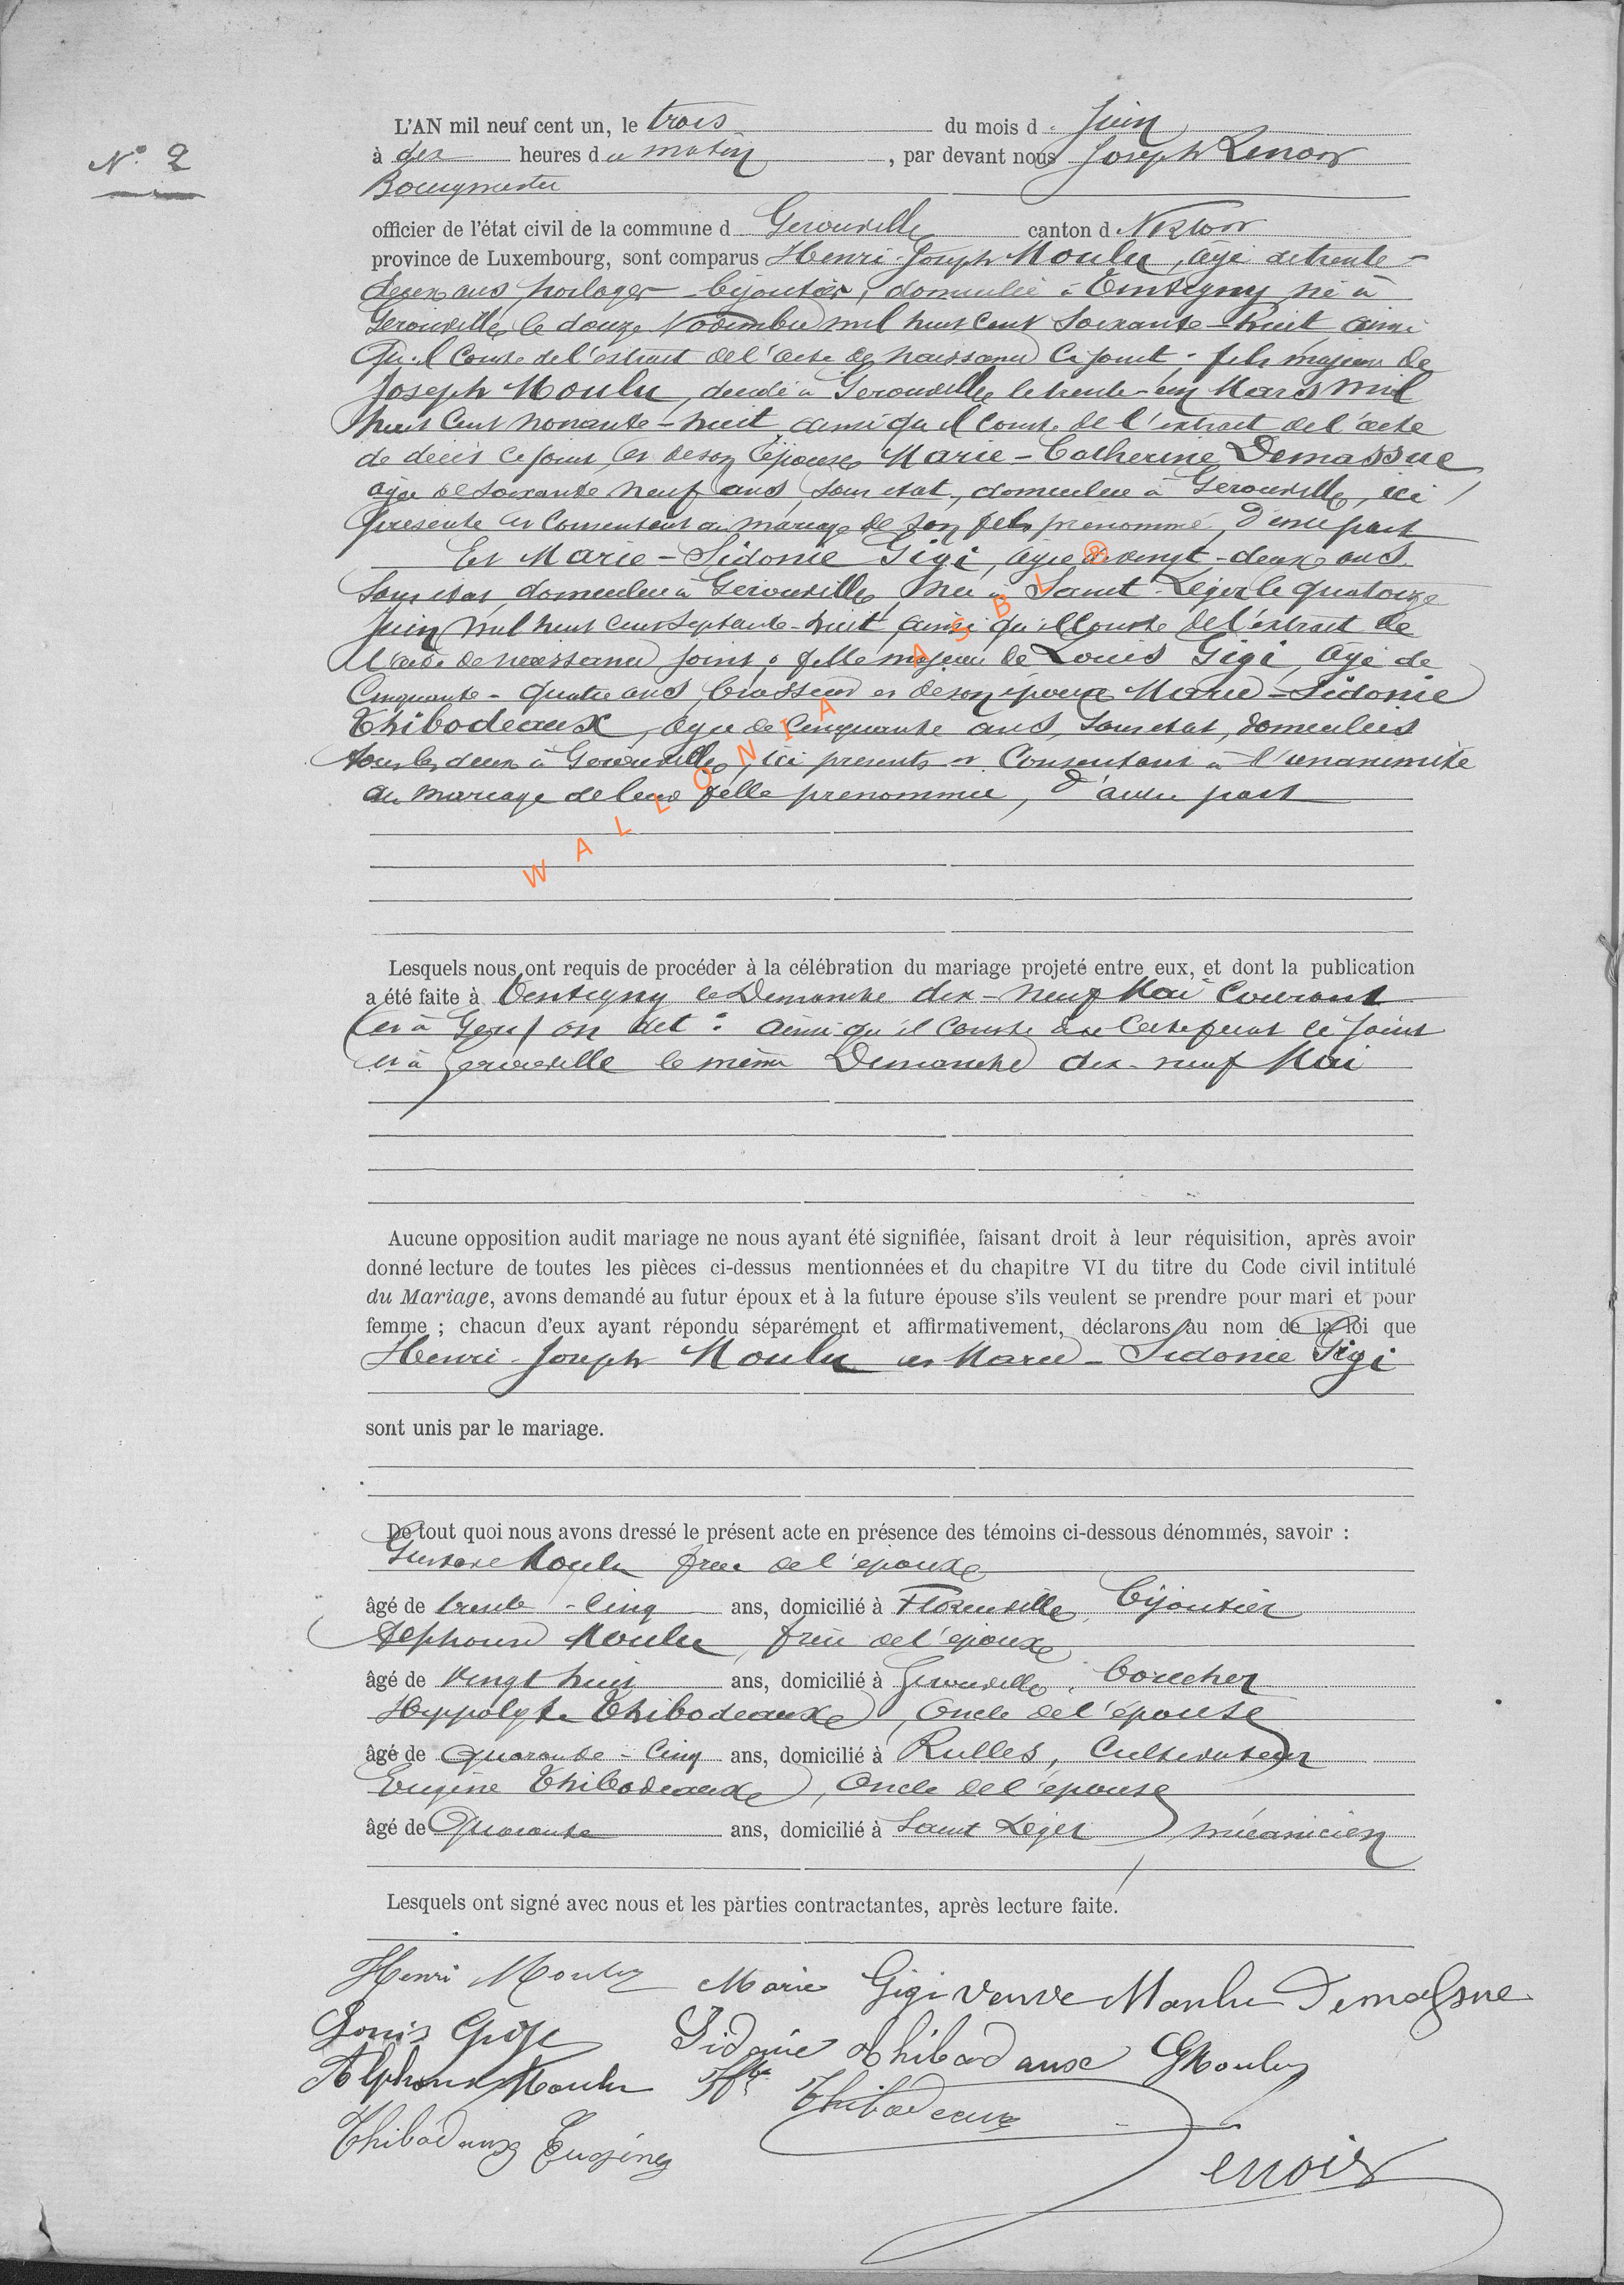 N° 2
L'AN mil neuf cent un, le trois du mois d Juin
à dix heures du matin, par devant nous Joseph Lenoir
Bourgmestre
officier de l'état civil de la commune d Gerouville canton d Virton
province de Luxembourg, sont comparus Henri-Joseph Moulu, âgé de trente-
deux ans, horloger-bijoutier, domicilié à Tintigny né à
Gerouville le douze Novembre mil huit cent soixante-huit ainsi
qu'il conste de l'extrait de l'acte de naissance ci joint; fils majeur de
Joseph Moulu, décédé à Gerouville le trente-un Mars mil
huit cent nonante-huit ainsi qu'il conste de l'extrait de l'acte
de décès ci joint, et de son épouse Marie-Catherine Demassue
âgée de soixante neuf ans, sans état, domiciliée à Gerouville, ici
présente et consentant au mariage de son fils prénommé, d'une part
Et Marie-Sidonie Gigi, âgée de vingt-deux ans
sans état, domiciliée à Gerouville, née à Saint-Léger le quatorze
Juin mil huit cent septante-huit ainsi qu'il conste de l'extrait de
l'acte de naissance joint; fille majeure de Louis Gigi, âgé de
cinquante-quatre ans, brasseur et de son épouse Marie-Sidonie
Thibodeaux, âgée de cinquante ans, sans état, domiciliés
tous les deux à Gerouville, ici présents et consentant à l'unanimité
au mariage de leur fille prénommée, d'autre part
WALLONIA ASBL ®
Lesquels nous ont requis de procéder à la célébration du mariage projeté entre eux, et dont la publication
a été faite à Tintigny le Dimanche dix-neuf Mai courant
(et à Gerou) on dit: ainsi qu'il conste du certificat ci joint
et à Gerouville le même Dimanche dix-neuf Mai
Aucune opposition audit mariage ne nous ayant été signifiée, faisant droit à leur réquisition, après avoir
donné lecture de toutes les pièces ci-dessus mentionnées et du chapitre VI du titre du Code civil intitulé
du Mariage, avons demandé au futur époux et à la future épouse s'ils veulent se prendre pour mari et pour
femme ; chacun d'eux ayant répondu séparément et affirmativement, déclarons au nom de la loi que
Henri-Joseph Moulu et Marie-Sidonie Gigi
sont unis par le mariage.
De tout quoi nous avons dressé le présent acte en présence des témoins ci-dessous dénommés, savoir :
Gustave Moulu frère de l'époux
âgé de trente-cinq ans, domicilié à Florenville, bijoutier
Alphonse Moulu, frère de l'époux
âgé de vingt huit ans, domicilié à Gerouville, boucher
Hyppolyte Thibodeaux, oncle de l'épouse
âgé de Quarante-cinq ans, domicilié à Rulles, cultivateur
Eugène Thibodeaux, oncle de l'épouse
âgé de Quarante ans, domicilié à Saint Léger mécanicien
Lesquels ont signé avec nous et les parties contractantes, après lecture faite.
Henri Moulu Marie Gigi veuve Moulu Demassue
Louis Gigi Sidonie Thibodaux GMoulu
Alphonse Moulu Hte Thibodeaux
Thibodaux Eugène Lenoir